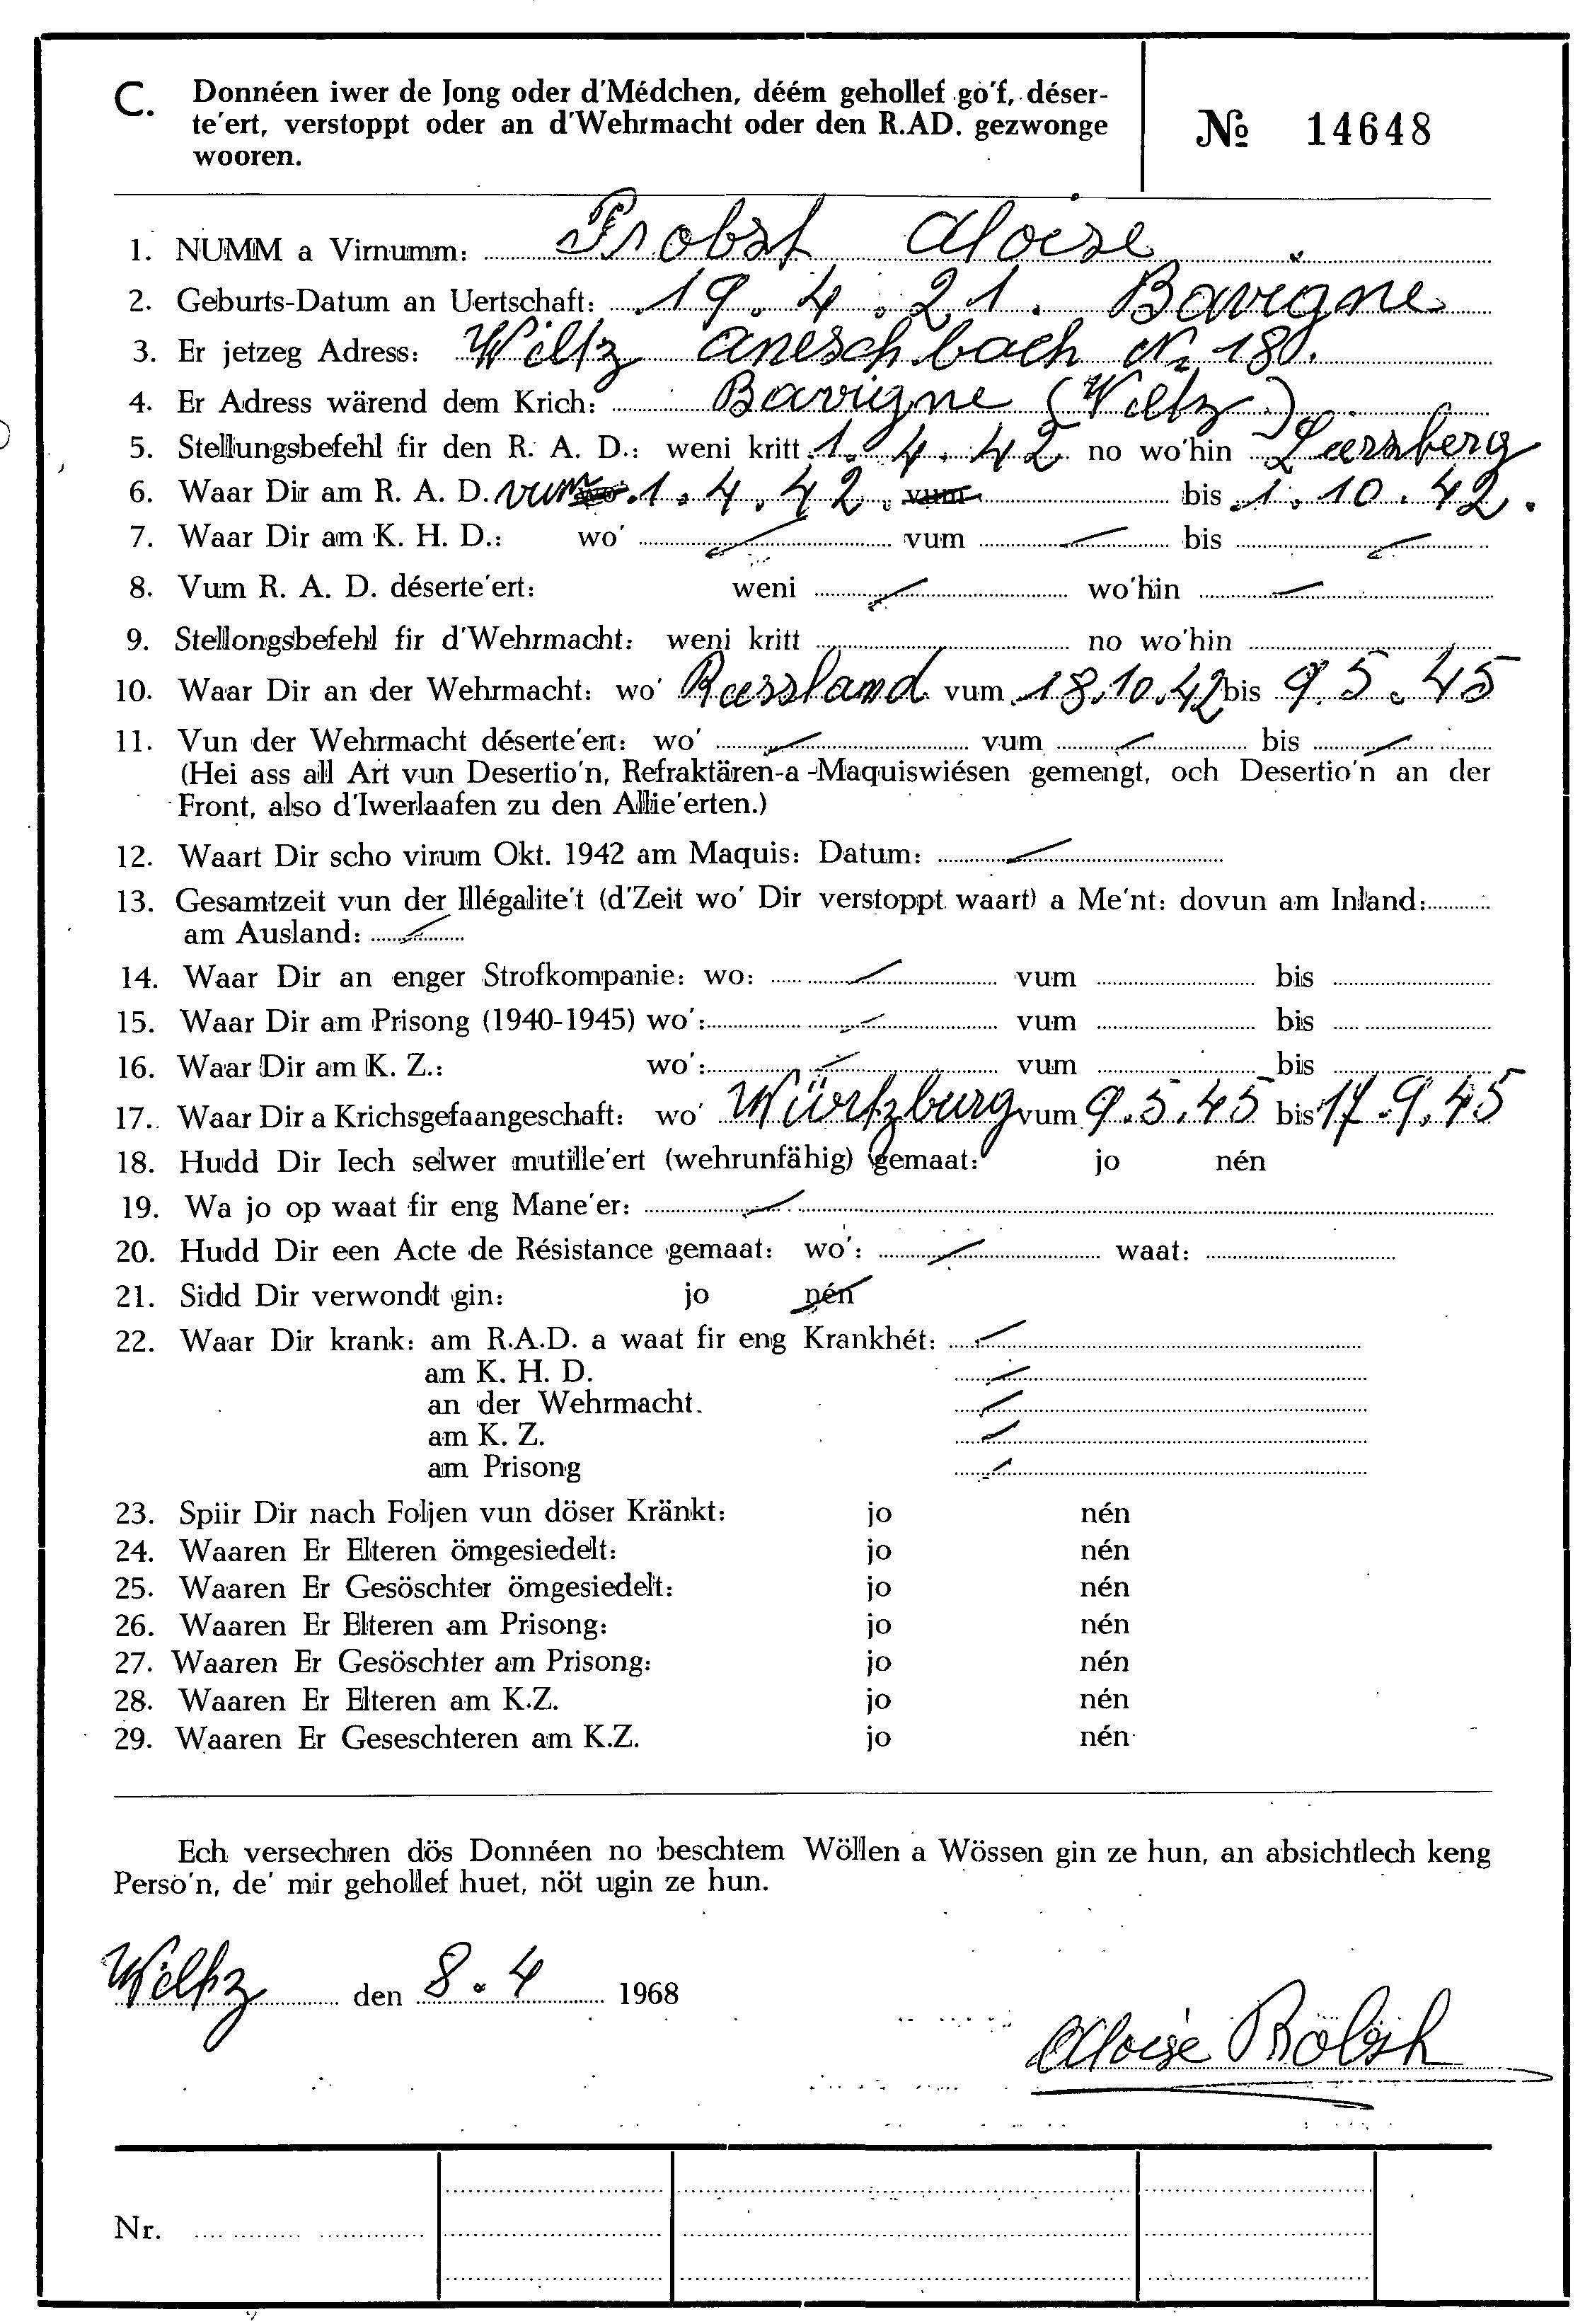 C. Donnéen iwer de Jong oder d'Médchen, déém gehollef go'f, déser-
te'ert, verstoppt oder an d'Wehrmacht oder den R.AD. gezwonge
wooren.
№ 14648
1. NUMM a Virnumm: Probst Aloise
2. Geburts-Datum an Uertschaft: 19.4.21. Bavigne
3. Er jetzeg Adress: Wiltz Aneschbach № 180.
4. Er Adress wärend dem Krich: Bavigne (Wiltz)
5. Stellungsbefehl fir den R. A. D.: weni kritt 1.4.42 no wo'hin
6. Waar Dir am R. A. D. vum 1.4.42. vum bis 1.10.42.
7. Waar Dir am K. H. D.: wo' vum bis
8. Vum R. A. D. déserte'ert: weni wo'hin
9. Stellongsbefehl fir d'Wehrmacht: weni kritt no wo'hin
10. Waar Dir an der Wehrmacht: wo' Russland vum 18.10.42 bis 9.5.45
11. Vun der Wehrmacht déserte'ert: wo' vum bis
(Hei ass all Art vun Desertio'n, Refraktären-a-Maquiswiésen gemengt, och Desertio'n an der
Front, also d'Iwerlaafen zu den Allie'erten.)
12. Waart Dir scho virum Okt. 1942 am Maquis: Datum:
13. Gesamtzeit vun der Illégalite't (d'Zeit wo' Dir verstoppt waart) a Me'nt: dovun am Inland:
am Ausland:
14. Waar Dir an enger Strofkompanie: wo: vum bis
15. Waar Dir am Prisong (1940-1945) wo': vum bis
16. Waar Dir am K. Z.: wo': vum bis
17. Waar Dir a Krichsgefaangeschaft: wo' Würtzburg vum 9.5.45 bis 17.9.45
18. Hudd Dir Iech selwer mutille'ert (wehrunfähig) gemaat: jo nén
19. Wa jo op waat fir eng Mane'er:
20. Hudd Dir een Acte de Résistance gemaat: wo': waat:
21. Sidd Dir verwondt gin: jo nén
22. Waar Dir krank: am R.A.D. a waat fir eng Krankhét:
am K. H. D.
an der Wehrmacht.
am K. Z.
am Prisong
23. Spiir Dir nach Foljen vun döser Kränkt: jo nén
24. Waaren Er Elteren ömgesiedelt: jo nén
25. Waaren Er Gesöschter ömgesiedelt: jo nén
26. Waaren Er Elteren am Prisong: jo nén
27. Waaren Er Gesöschter am Prisong: jo nén
28. Waaren Er Elteren am K.Z. jo nén
29. Waaren Er Geseschteren am K.Z. jo nén
Ech versechren dös Donnéen no beschtem Wöllen a Wössen gin ze hun, an absichtlech keng
Perso'n, de' mir gehollef huet, nöt ugin ze hun.
Wiltz den 8.4 1968
Aloise Probst
Nr.